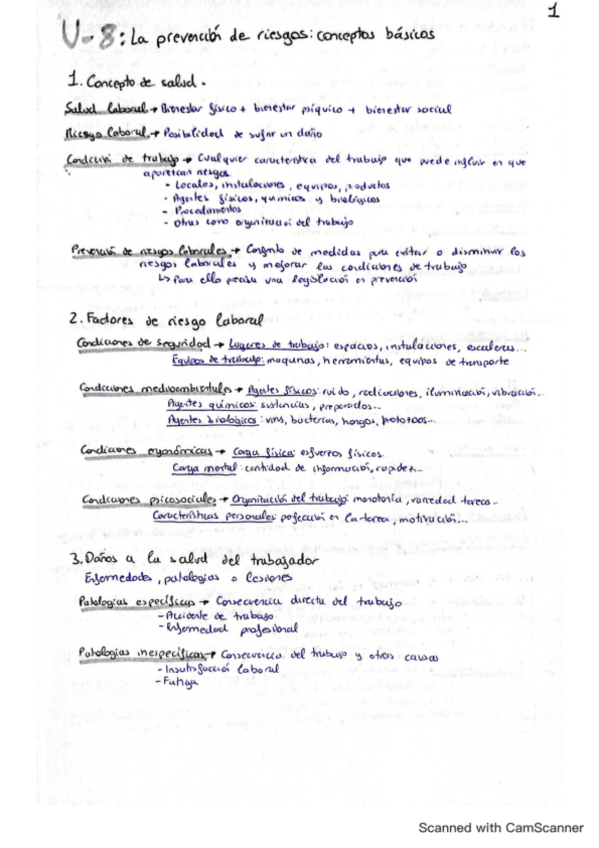 1
U-8: La prevención de riesgos: conceptos básicos
1. Concepto de salud.
Salud laboral → Bienestar físico + bienestar psíquico + bienestar social
Riesgo laboral → Posibilidad de sufrir un daño
Condición de trabajo → Cualquier característica del trabajo que puede influir en que
aparezcan riesgos
- Locales, instalaciones, equipos, productos
- Agentes físicos, químicos y biológicos
- Procedimientos
- Otras como organización del trabajo
Prevención de riesgos laborales → Conjunto de medidas para evitar o disminuir los
riesgos laborales y mejorar las condiciones de trabajo
↳ Para ello precisa una legislación en prevención
2. Factores de riesgo laboral
Condiciones de seguridad → Lugares de trabajo: espacios, instalaciones, escaleras...
Equipos de trabajo: maquinas, herramientas, equipos de transporte
Condiciones medioambientales → Agentes físicos: ruido, radiaciones, iluminación, vibración...
Agentes químicos: sustancias, preparados...
Agentes biológicos: virus, bacterias, hongos, protozoos...
Condiciones ergonómicas → Carga física: esfuerzos físicos
Carga mental: cantidad de información, rapidez...
Condiciones psicosociales → Organización del trabajo: monotonía, variedad tareas...
Características personales: perfección en la tarea, motivación...
3. Daños a la salud del trabajador
Enfermedades, patologías o lesiones
Patologías específicas → Consecuencia directa del trabajo
- Accidente de trabajo
- Enfermedad profesional
Patologías inespecíficas → Consecuencia del trabajo y otras causas
- Insatisfacción laboral
- Fatiga
Scanned with CamScanner